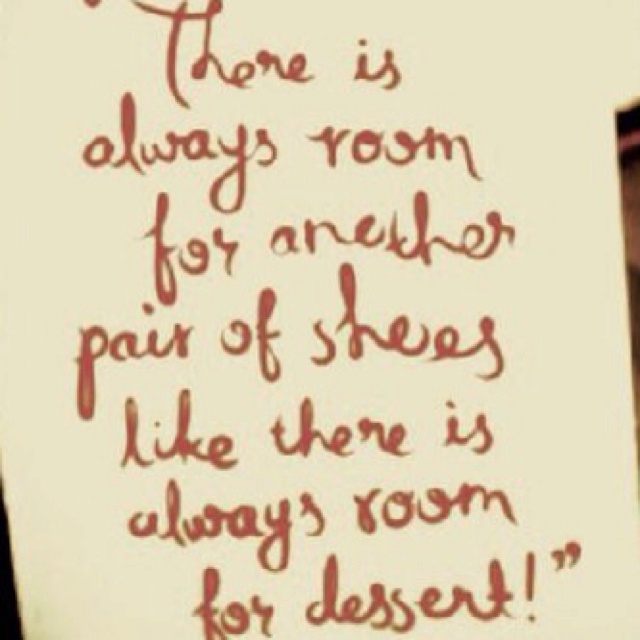 "There is
always room
for another
pair of shoes
like there is
always room
for dessert!"